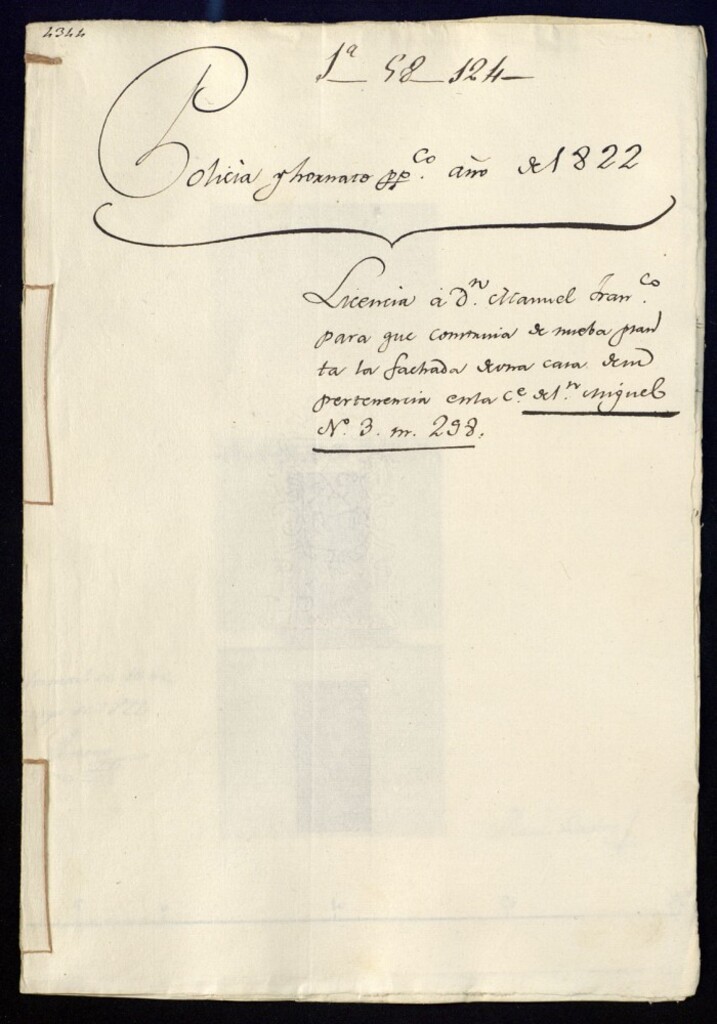 4344
1ª 58 124
Policia y hornato ppco. año de 1822
Licencia á Dn. Manuel Franco.
para que construia de nueba plan
ta la fachada de una casa de su
pertenencia en la Ce. de Sn. Miguel
No. 3. m. 298.